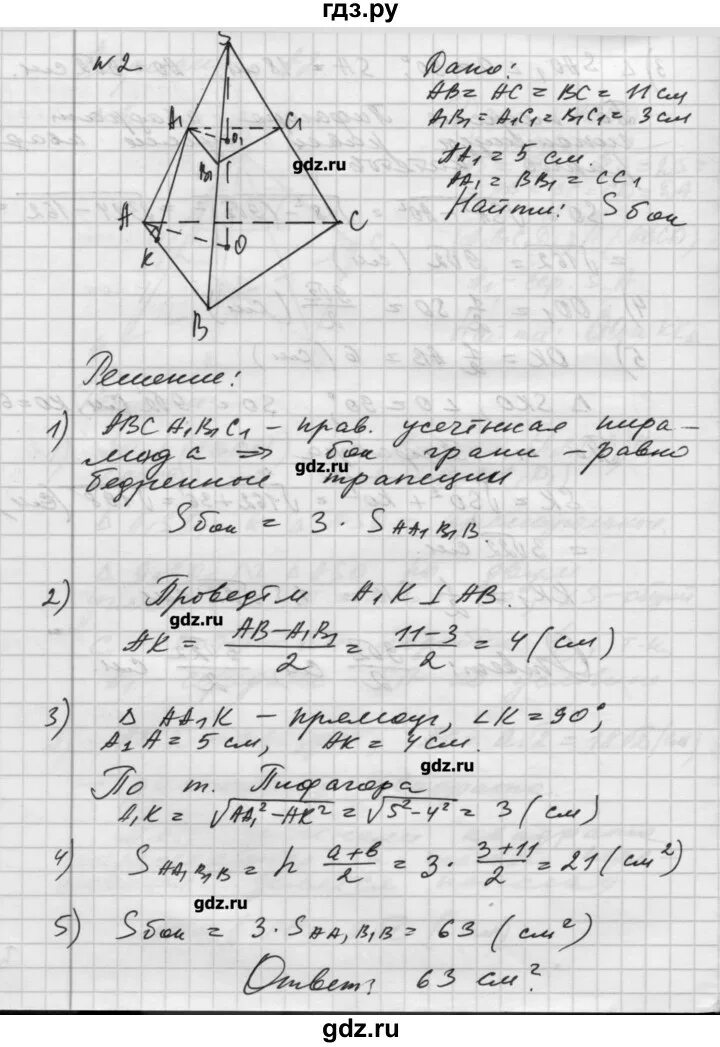 гдз.ру
№2
S
A1
C1
O1
B1
A
C
K
O
B
gdz.ru
Дано:
AB = AC = BC = 11 см
A1B1 = A1C1 = B1C1 = 3 см
AA1 = 5 см.
AA1 = BB1 = CC1
Найти: Sбок
Решение:
1) ABCA1B1C1 – прав. усечённая пира-
мида => бок грани – равно
gdz.ru
бедренные трапеции
Sбок = 3 · SAA1B1B.
2) Проведём A1K ⊥ AB.
gdz.ru
AK = (AB – A1B1)/2 = (11 – 3)/2 = 4 (см)
3) Δ AA1K – прямоуг, ∠K = 90°,
A1A = 5 см, AK = 4 см.
gdz.ru
По т. Пифагора
A1K = √(AA1² – AK²) = √(5² – 4²) = 3 (см)
4) SAA1B1B = h (a+b)/2 = 3 · (3+11)/2 = 21 (см²)
gdz.ru
5) Sбок = 3 · SAA1B1B = 63 (см²)
Ответ: 63 см²
gdz.ru